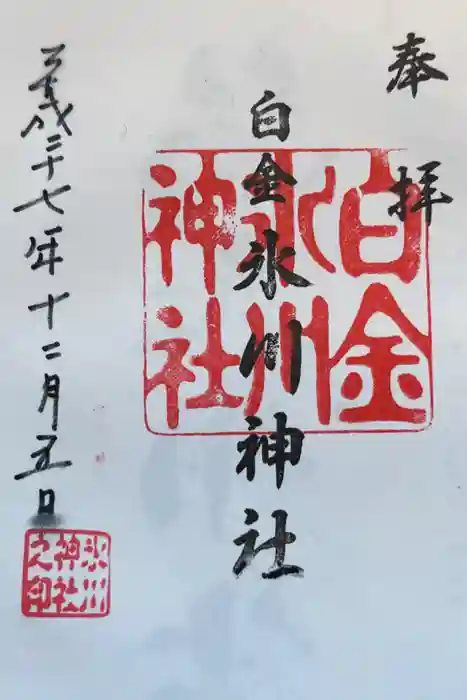 奉拝
白金氷川神社
平成二十七年十二月五日
白金
氷川
神社
氷川
神社
之印